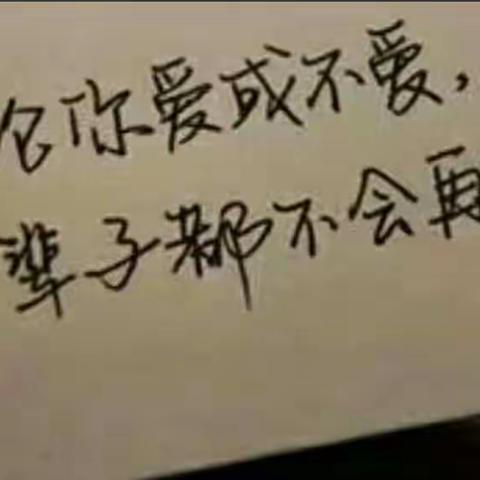 论你爱或不爱,
辈子都不会再